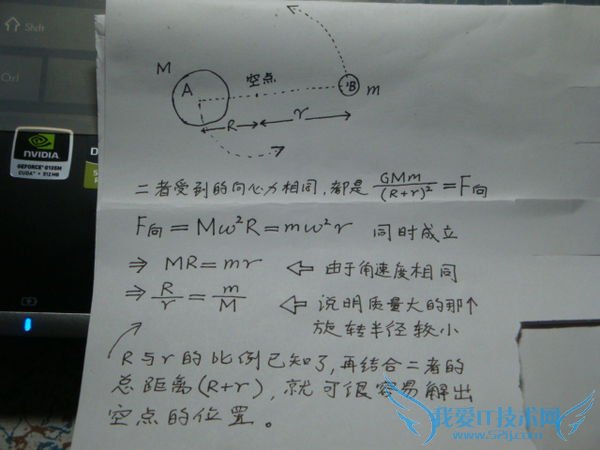 Shift
Ctrl
NVIDIA
GEFORCE
CUDA
512MB
M
A
空点
B
m
R
r
二者受到的向心力相同,都是 GMm/(R+r)² = F向
F向 = Mω²R = mω²r 同时成立
⇒ MR = mr ⇐ 由于角速度相同
⇒ R/r = m/M ⇐ 说明质量大的那个
旋转半径较小
R与r的比例已知了,再结合二者的
总距离(R+r),就可很容易解出
空点的位置。
我爱IT技术网
www.52ij.com